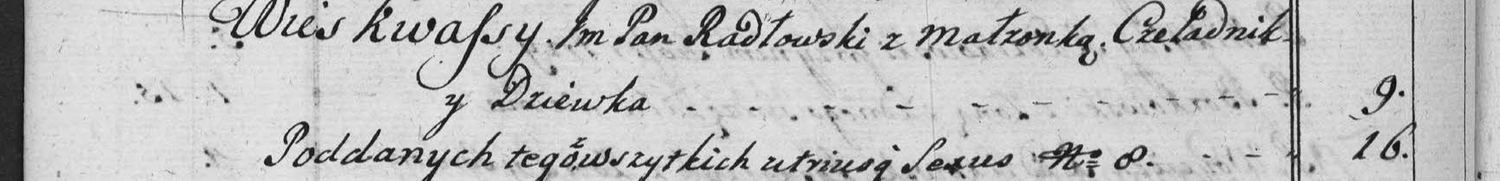 Wieś Kwassy. Im Pan Radłowski z Małżonką. Czeladnik
y Dziewka - - - - - - - - - 9.
Poddanych tegoż wszytkich utriusq Sexus No 8. - - - 16.